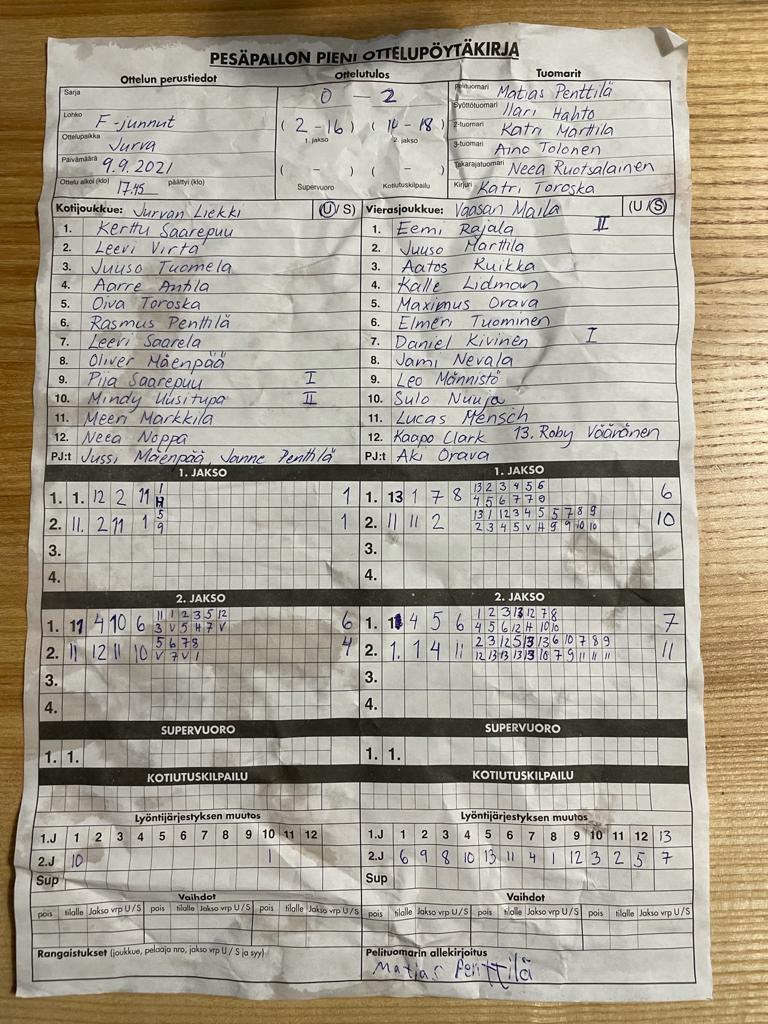 PESÄPALLON PIENI OTTELUPÖYTÄKIRJA
Ottelun perustiedot
Sarja
Lohko F-junnut
Ottelupaikka Jurva
Päivämäärä 9.9.2021
Ottelu alkoi (klo) 17.45 päättyi (klo)
Ottelutulos
0 - 2
(2-16) (14-18)
1. jakso 2. jakso
( - ) ( - )
Supervuoro Kotiutuskilpailu
Tuomarit
Pelituomari Matias Penttilä
Syöttötuomari Ilari Hahto
2-tuomari Katri Marttila
3-tuomari Aino Tolonen
Takarajatuomari Neea Ruotsalainen
Kirjuri Katri Toroska
Kotijoukkue: Jurvan Liekki (U/S)
1. Kerttu Saarepuu
2. Leevi Virta
3. Juuso Tuomela
4. Aarre Antila
5. Oiva Toroska
6. Rasmus Penttilä
7. Leevi Saarela
8. Oliver Mäenpää
9. Piia Saarepuu I
10. Mindy Uusitupa II
11. Meeri Markkila
12. Neea Noppa
PJ:t Jussi Mäenpää, Janne Penttilä
Vierasjoukkue: Vaasan Maila (U/S)
1. Eemi Rajala II
2. Juuso Marttila
3. Aatos Kuikka
4. Kalle Lidman
5. Maximus Orava
6. Elmeri Tuominen
7. Daniel Kivinen I
8. Jami Nevala
9. Leo Männistö
10. Sulo Nuuja
11. Lucas Mensch
12. Kaapo Clark 13. Roby Vääränen
PJ:t Aki Orava
1. JAKSO
1. 1. 12 2 11 1 1
H
2. 11. 2 11 1 5 1
9
3.
4.
2. JAKSO
1. 11 4 10 6 11 1 2 3 5 12 6
3 V 5 H 7 V
2. 11 12 11 10 5 6 7 8 4
V 7 V 1
3.
4.
SUPERVUORO
1. 1.
KOTIUTUSKILPAILU
1. JAKSO
1. 13 1 7 8 13 2 3 4 5 6 6
4 5 6 7 7 8
2. 11 11 2 13 1 12 3 4 5 5 7 8 9 10
2 3 4 5 V H 9 9 10 10
3.
4.
2. JAKSO
1. 4 5 6 1 2 3 13 12 7 8 7
4 5 6 12 H 10 10
2. 1. 1 4 11 2 3 12 5 13 13 6 10 7 8 9 11
12 13 13 13 13 10 7 9 11 11 11
3.
4.
SUPERVUORO
1. 1.
KOTIUTUSKILPAILU
Lyöntijärjestyksen muutos
1.J 1 2 3 4 5 6 7 8 9 10 11 12
2.J 10 1
Sup
Vaihdot
pois tilalle Jakso vrp U/S pois tilalle Jakso vrp U/S pois tilalle Jakso vrp U/S
Rangaistukset (joukkue, pelaaja nro, jakso vrp U/S ja syy)
Lyöntijärjestyksen muutos
1.J 1 2 3 4 5 6 7 8 9 10 11 12 13
2.J 6 9 8 10 13 11 4 1 12 3 2 5 7
Sup
Vaihdot
pois tilalle Jakso vrp U/S pois tilalle Jakso vrp U/S pois tilalle Jakso vrp U/S
Pelituomarin allekirjoitus
Matias Penttilä